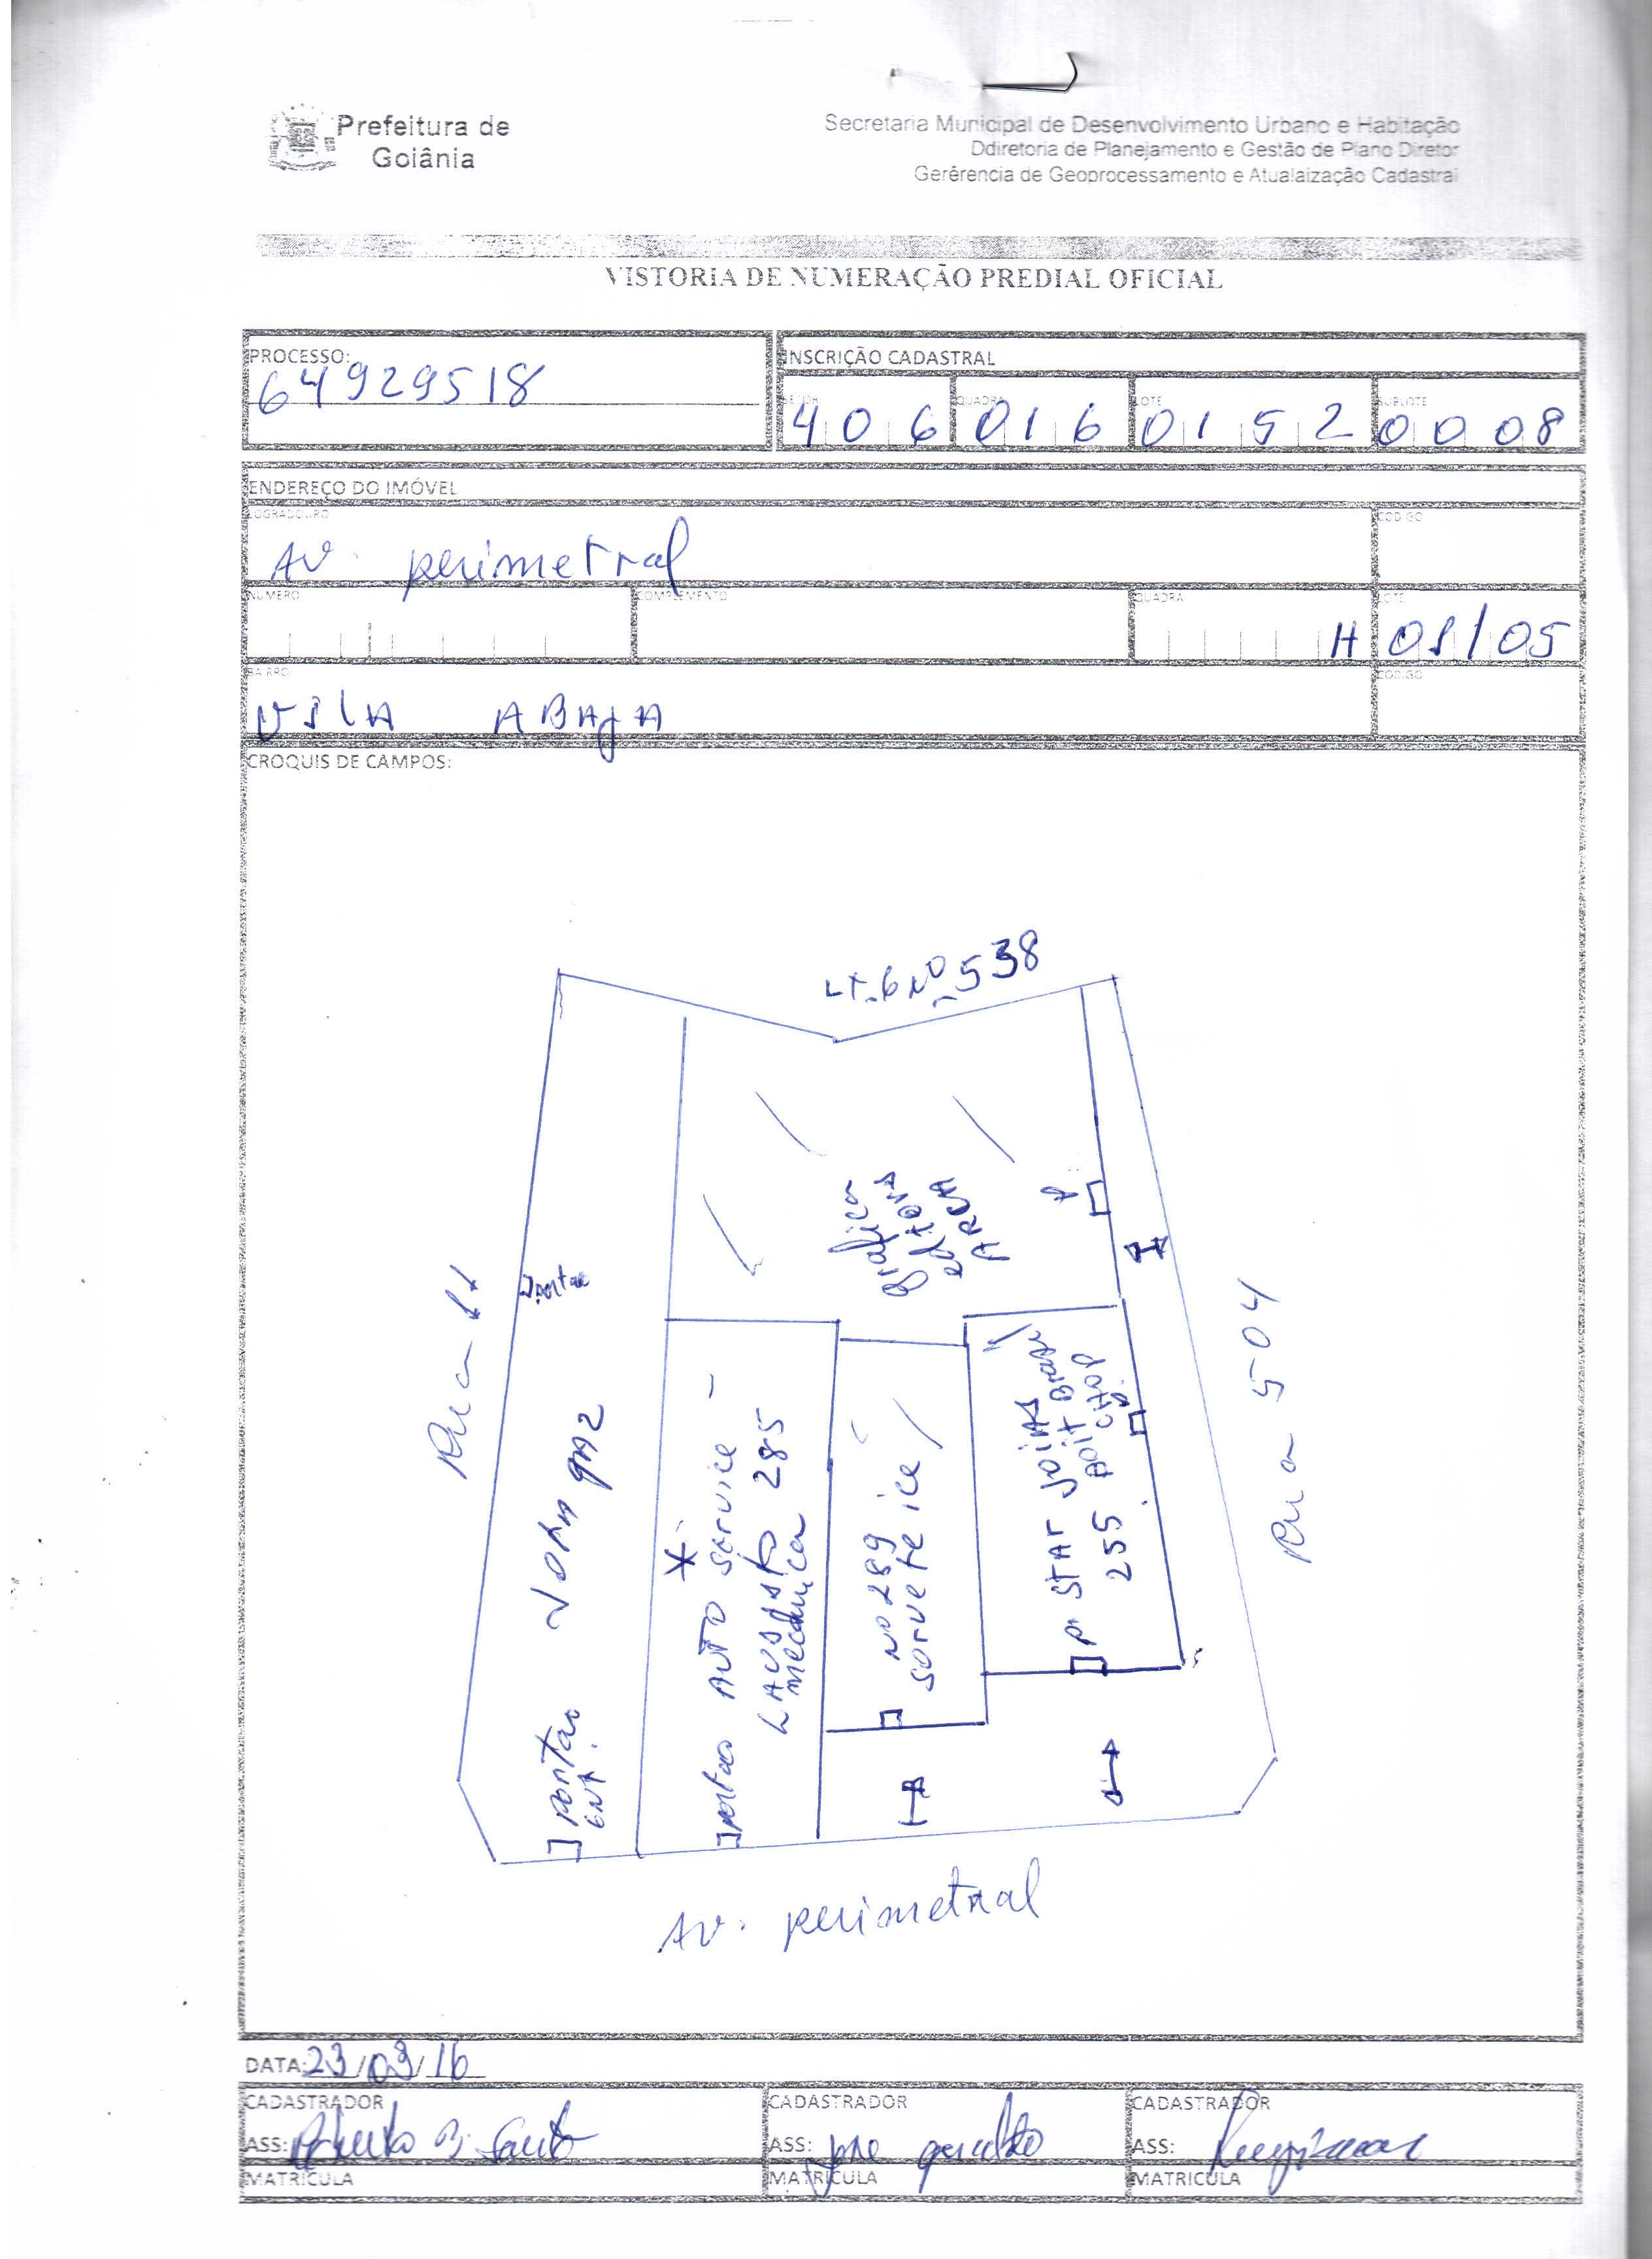 Prefeitura de
Goiânia
Secretaria Municipal de Desenvolvimento Urbano e Habitação
Ddiretoria de Planejamento e Gestão de Plano Diretor
Gerêrencia de Geoprocessamento e Atualaização Cadastral
VISTORIA DE NUMERAÇÃO PREDIAL OFICIAL
PROCESSO:
64929518
INSCRIÇÃO CADASTRAL
SETOR QUADRA LOTE SUBLOTE
406 016 0152 0008
ENDEREÇO DO IMÓVEL
LOGRADOURO CODIGO
AV. perimetral
NUMERO COMPLEMENTO QUADRA LOTE
H 01/05
BAIRRO CODIGO
VILA ABAJA
CROQUIS DE CAMPOS:
LT-6 Nº 538
Grafica
editora
Rua 11
portao
Rua 504
AUTO service
mecanica 285
Nº 289
sorvete ice
P STAR JOIAS
255
CHOP
portao
ENT.
portao
AV. perimetral
DATA: 23/03/16
CADASTRADOR CADASTRADOR CADASTRADOR
ASS: ASS: Jose geraldo ASS:
MATRICULA MATRICULA MATRICULA